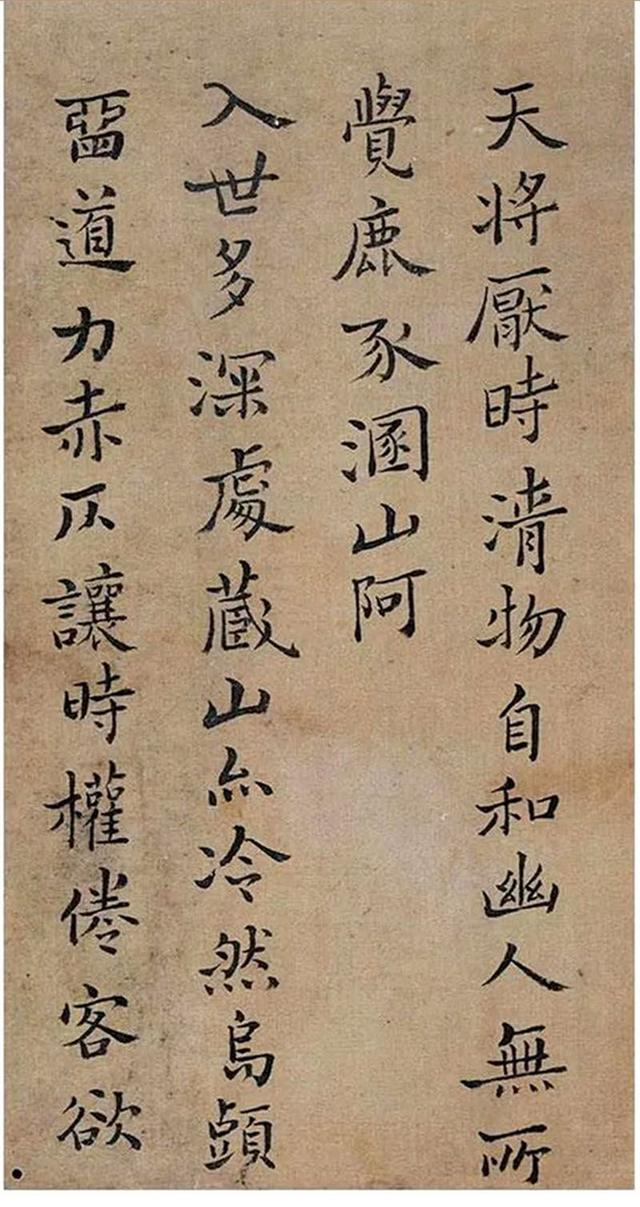 天將厭時清物自和幽人無所
覺鹿豕溷山阿
入世多深處藏山亦冷然烏頭
畱道力赤仄讓時權倦客欲